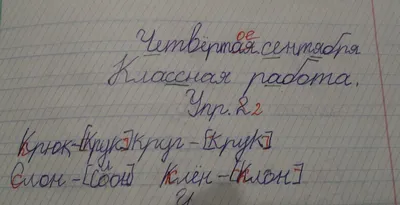 ое
Четвёртая сентября
Классная работа.
Упр. 22
Крюк-[Крук] Круг-[Крук]
Слон- Клён-[Клон]